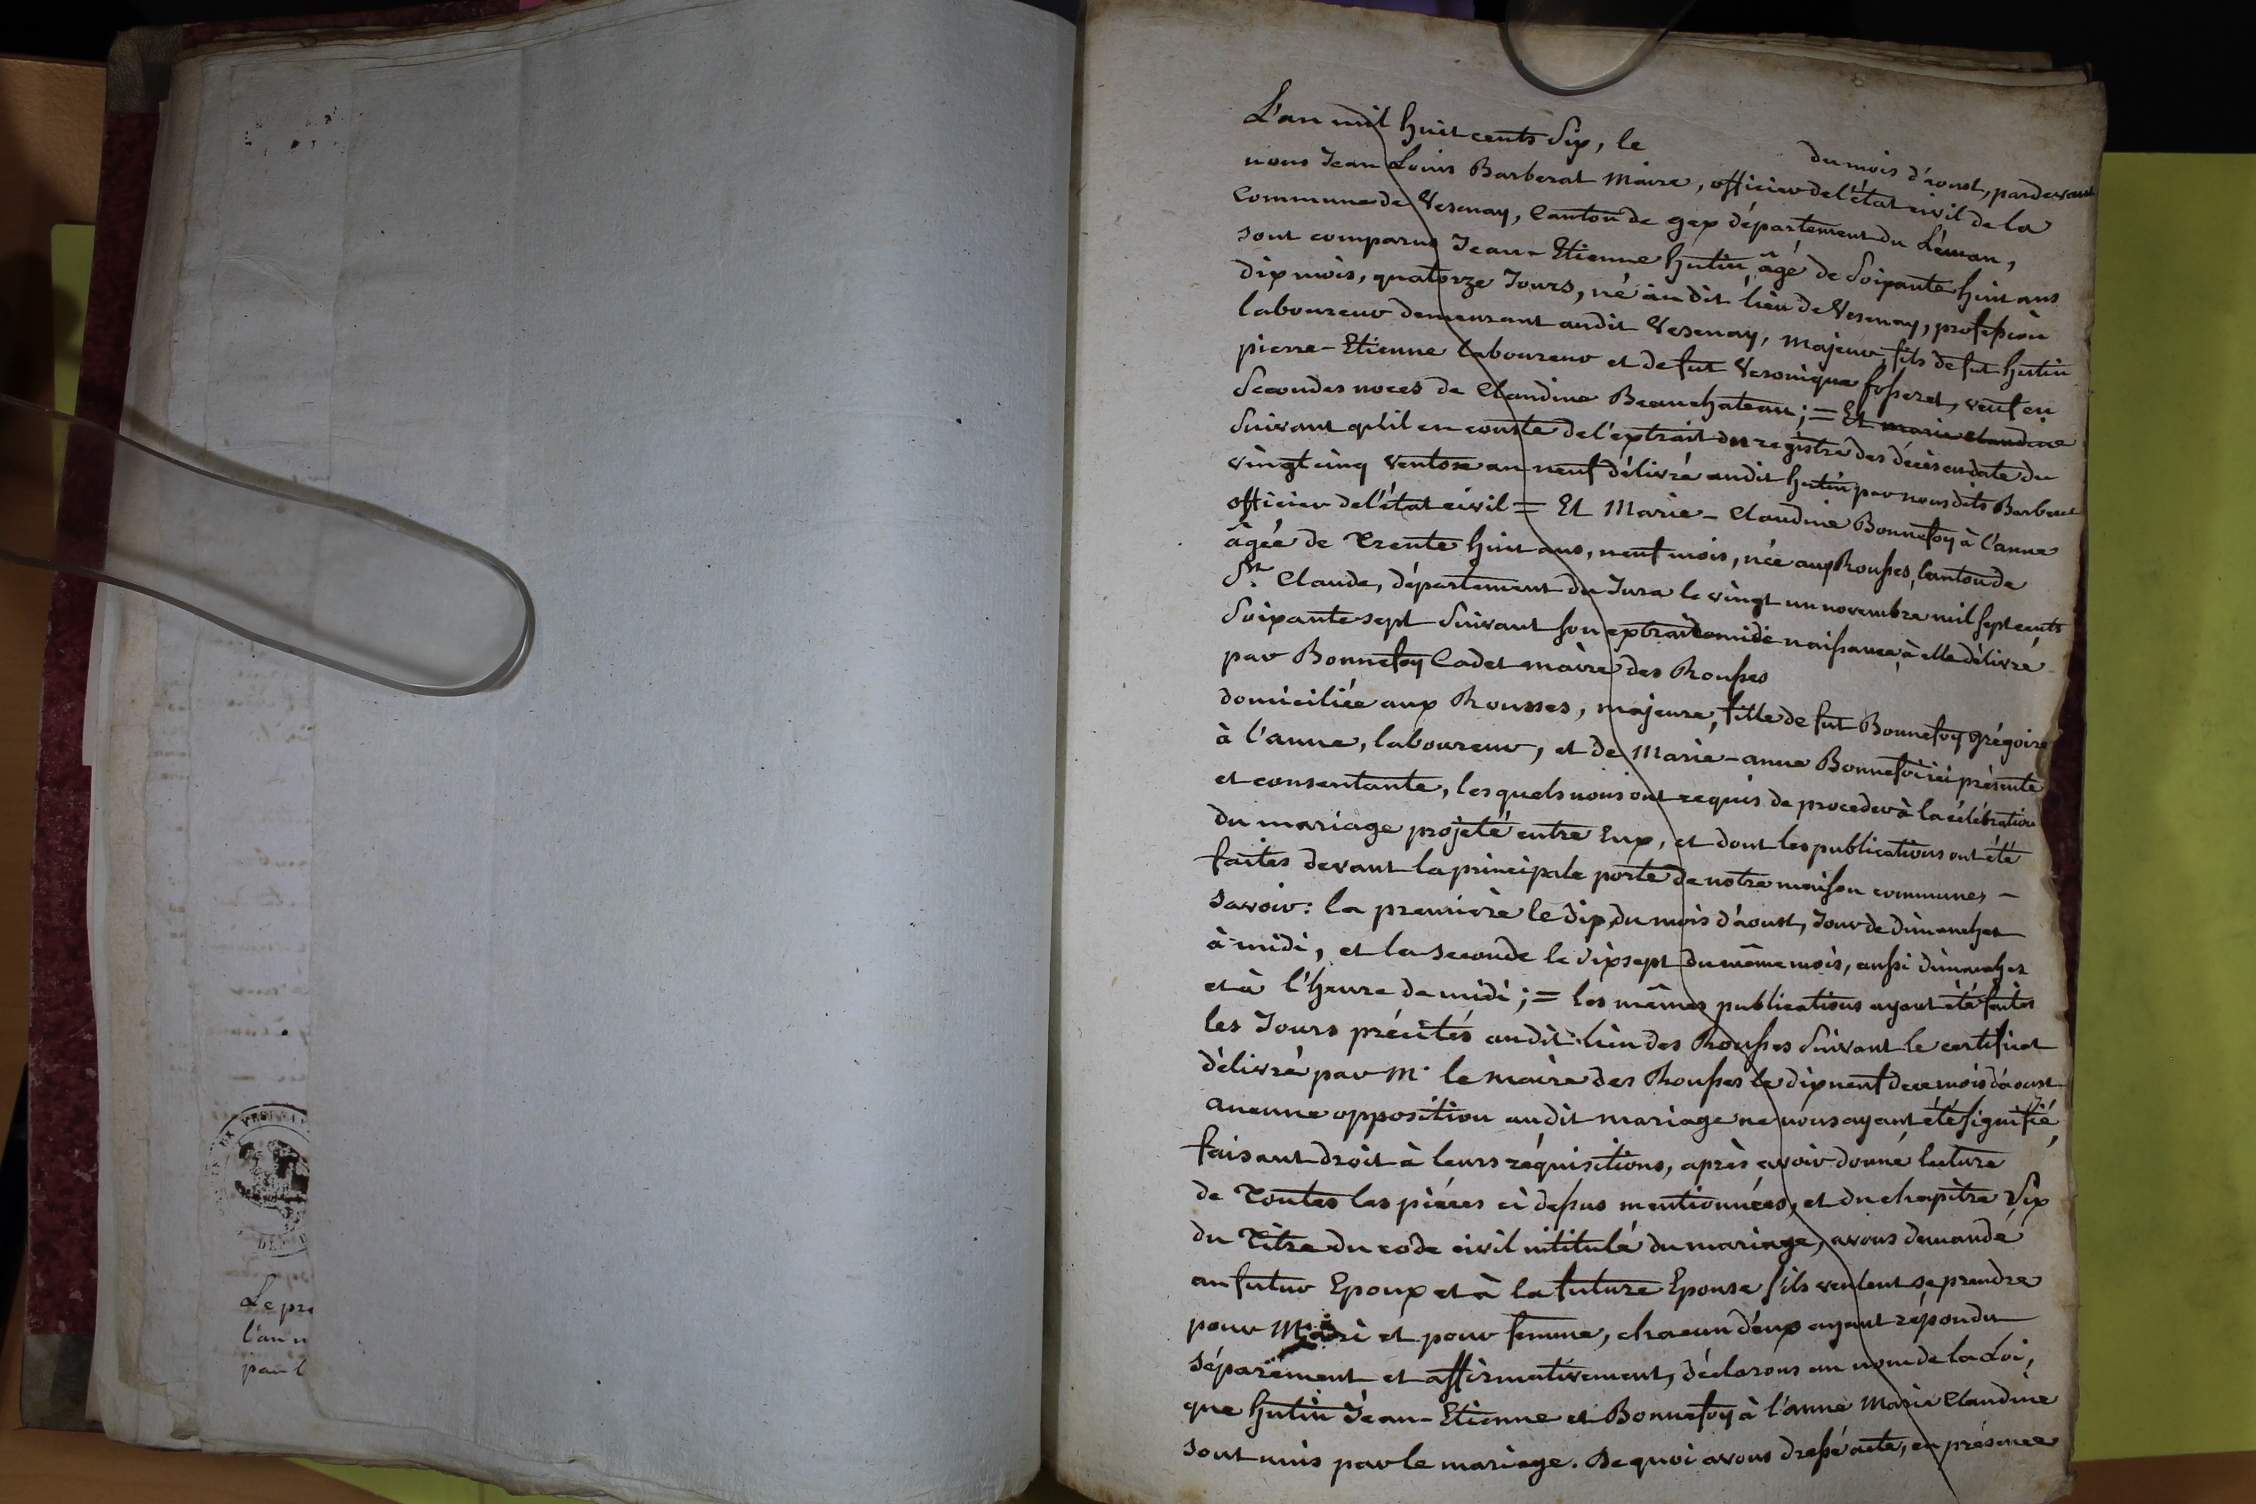 Le pre
l'an
par l
L'an mil huit cents Six, le du mois d'aoust, pardevant
nous Jean Louis Barberat Maire, officier de l'état civil de la
Commune de Vesenay, Canton de gex département du Léman,
sont comparus Jean-Etienne hutin âgé de Soixante huit ans
dix mois, quatorze Jours, né au dit lieu de Vesenay, profession
laboureur demeurant audit Vesenay, Majeur, fils de fut hutin
pierre-Etienne laboureur et de fut Veronique fosseret, veuf en
Secondes noces de Claudine Beauchateau; = Et marie claudine
Suivant qu'il en conste de l'extrait du registre des décès en date du
vingt cinq Ventose an neuf délivré audit hutin par nous dits Barberat
officier de l'état civil = Et Marie-Claudine Bonnefoy à l'anne
âgée de Trente huit ans, neuf mois, née aux Rousses, Canton de
St. Claude, département du Jura le vingt un novembre mil sept cents
Soixante sept Suivant son extrait de naissance à elle délivré
par Bonnefoy Cadet maire des Rousses
domiciliée aux Rousses, majeure, fille de fut Bonnefoy grégoire
à l'anne, laboureur, et de Marie-anne Bonnefoi ici présente
et consentante, les quels nous ont requis de proceder à la célébration
du mariage projeté entre Eux, et dont les publications ont été
faites devant la principale porte de notre maison communes -
Savoir: la première le dix du mois d'aoust, Jour de dimanches
à midi, et la Seconde le dixsept du même mois, aussi dimanches
et à l'heure de midi; = les mêmes publications ayant été faites
les Jours précités audit lieu des Rousses Suivant le certificat
délivré par Mr. le maire des Rousses le dixneuf de ce mois d'aoust
aucune opposition audit mariage ne nous ayant été signifié,
faisant droit à leurs réquisitions, après avoir donné lecture
de Toutes les pièces ci dessus mentionnées, et du chapitre Six
du Titre du code civil intitulé du mariage, avons demandé
au futur Epoux et à la future Epouse s'ils veulent se prendre
pour Mari et pour femme, chacun d'eux ayant répondu
Séparément et affirmativement, déclarons au nom de la Loi,
que hutin Jean-Etienne et Bonnefoy à l'anne Marie Claudine
Sont unis par le mariage. De quoi avons dressé acte, en présence